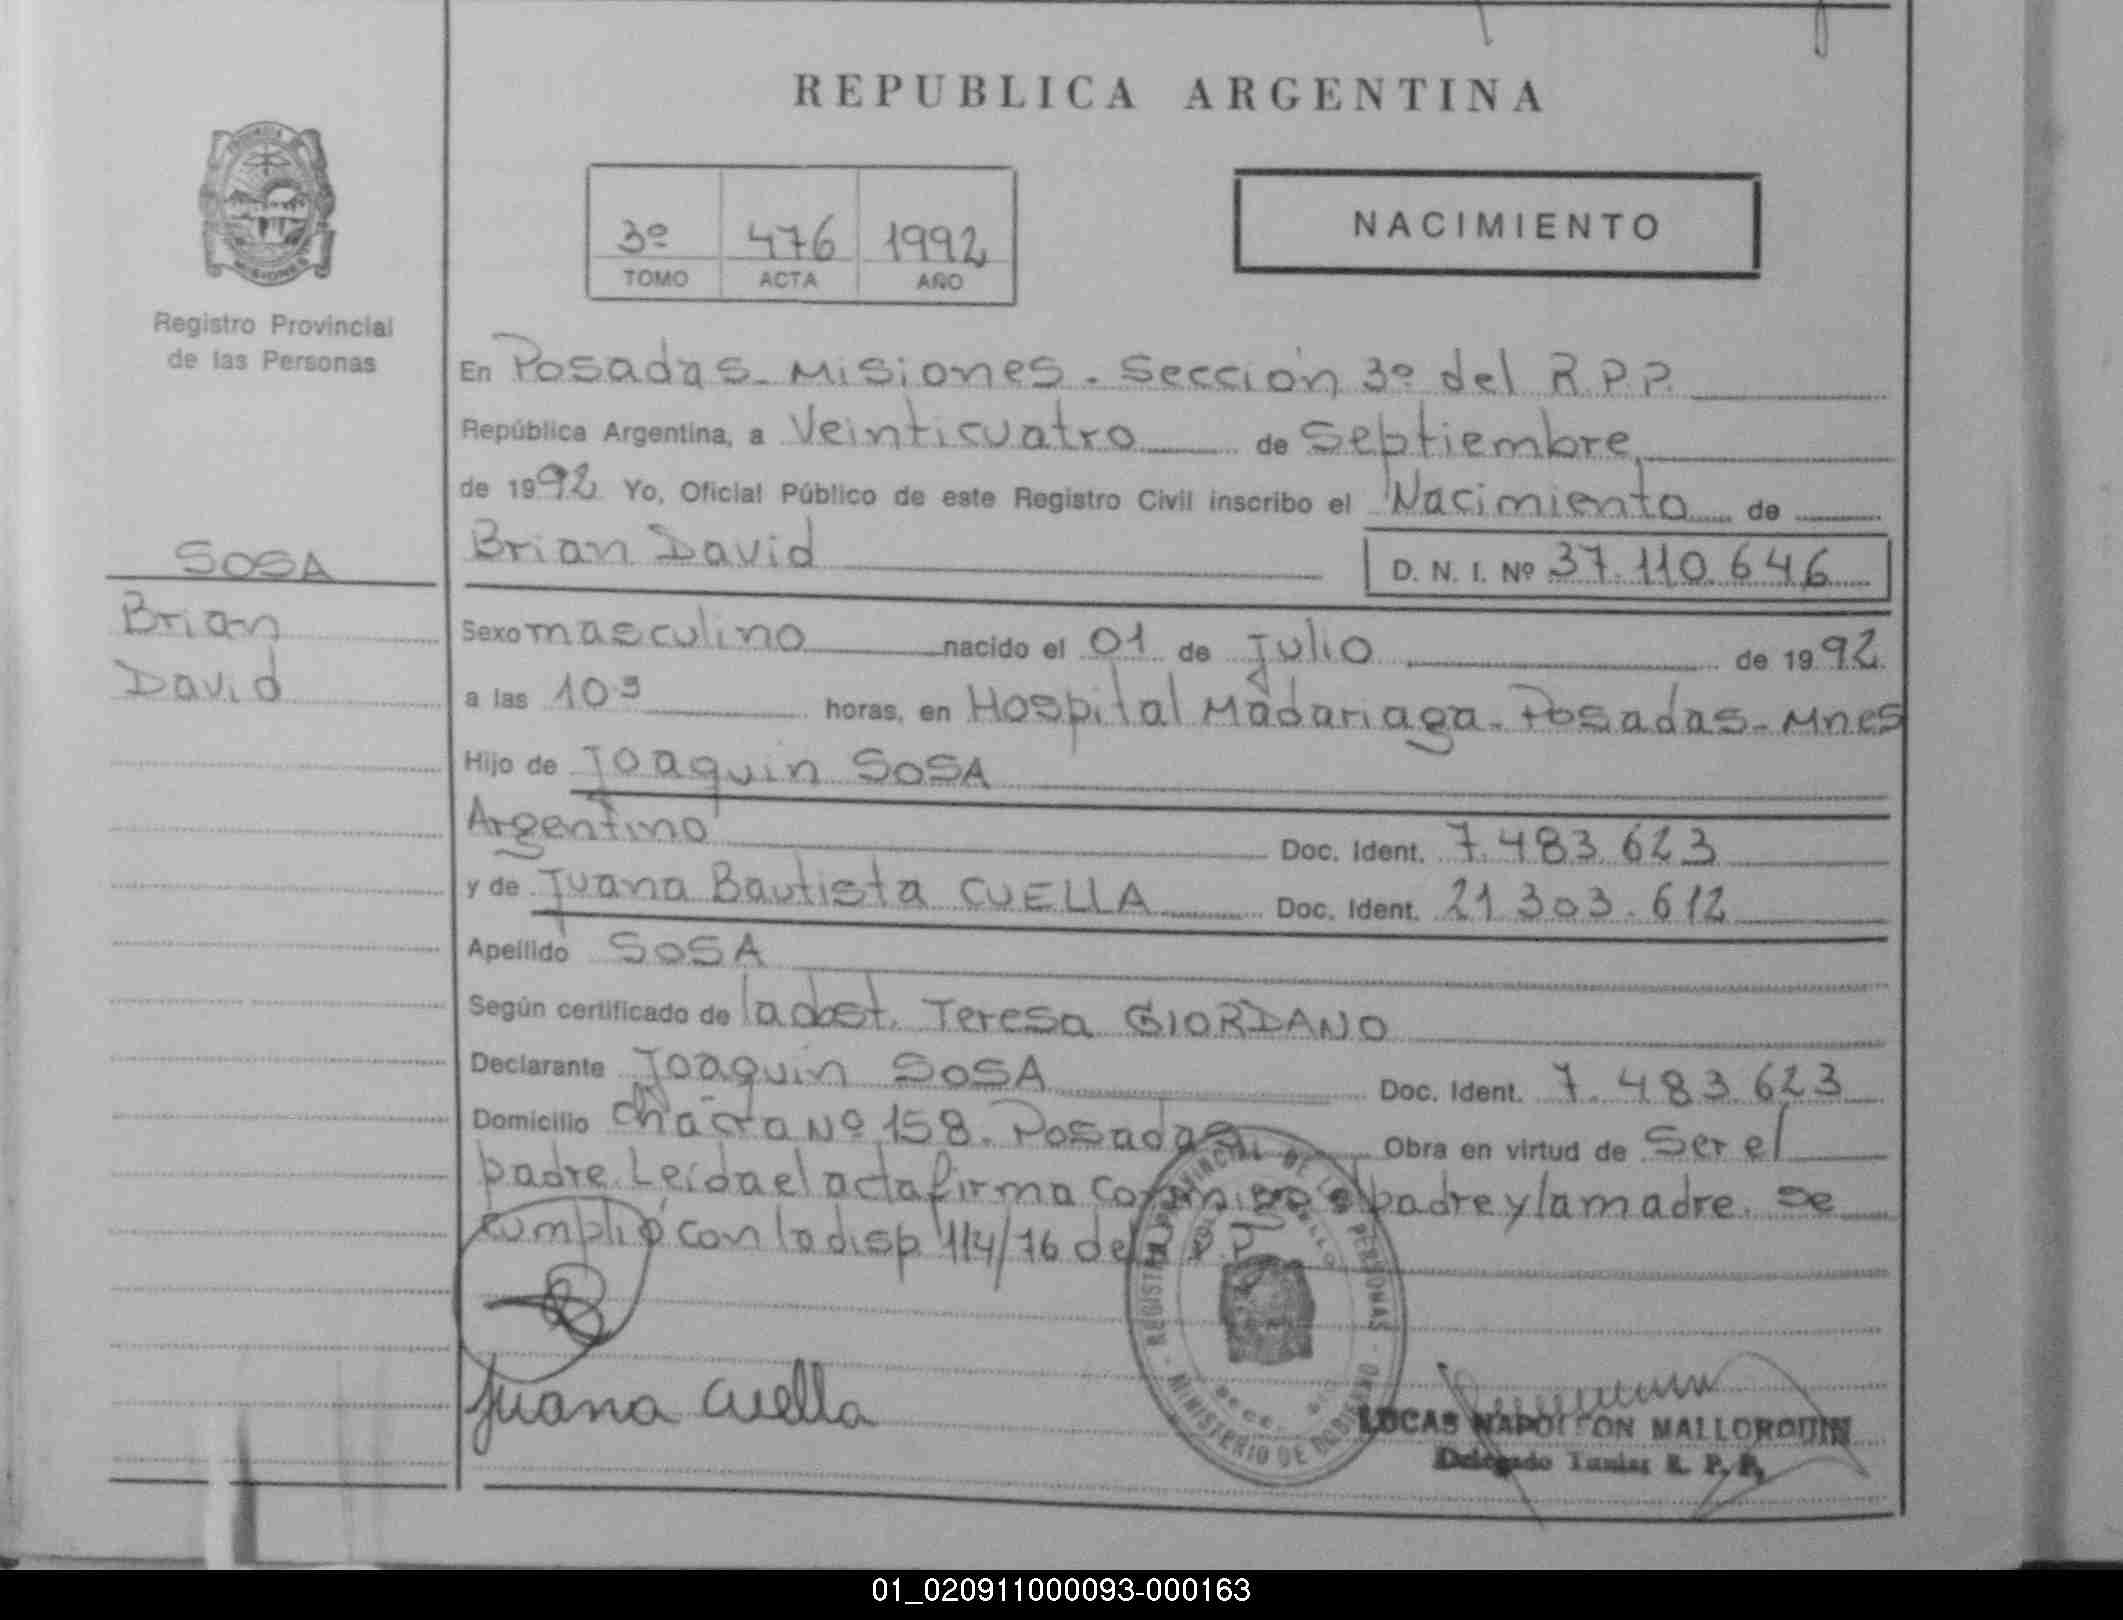 REPUBLICA ARGENTINA
PROVINCIA DE
MISIONES
Registro Provincial
de las Personas
3º 476 1992
TOMO ACTA AÑO
NACIMIENTO
En Posadas - Misiones - Sección 3º del R.P.P.
República Argentina, a Veinticuatro de Septiembre,
de 1992 Yo, Oficial Público de este Registro Civil inscribo el Nacimiento de
SOSA
Brian
David
Brian David
D. N. I. Nº 37.110.646
Sexo masculino nacido el 01 de Julio de 1992
a las 10 horas, en Hospital Madariaga - Posadas - Mnes
Hijo de Joaquin SOSA
Argentino Doc. Ident. 7.483.623
y de Juana Bautista CUELLA Doc. Ident. 21.303.612
Apellido SOSA
Según certificado de la obst. Teresa GIORDANO
Declarante Joaquin SOSA Doc. Ident. 7.483.623
Domicilio Chacra Nº 158. Posadas Obra en virtud de ser el
padre. Leída el acta firma conmigo el padre y la madre. Se
cumplió con la disp. 114/76 del R.P.P.
Juana Cuella
REGISTRO PROVINCIAL DE LAS PERSONAS - MINISTERIO DE GOBIERNO -
LUCAS NAPOLEON MALLORQUIN
Delegado R. P. P.
01_020911000093-000163